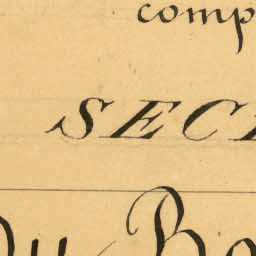 comp
SEC
Du Bo